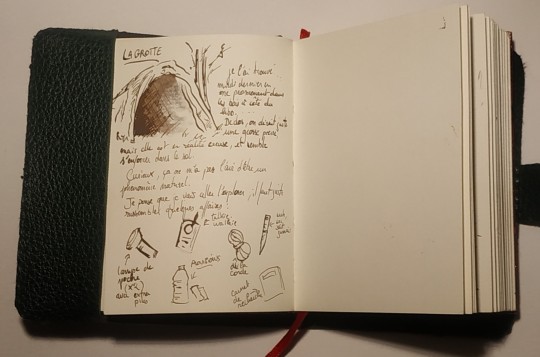 LA GROTTE
je l'ai trouvé
mardi dernier en
me promenant dans
les bois à côté du
De loin, on dirait juste
une grosse pierre
mais elle est en réalité creuse, et semble
s'enfoncer dans le sol.
Curieux, ça on m'a pas l'air d'être un
phénomène naturel.
Je pense que je vais aller l'explorer, il faut juste
rassembler quelques affaires.
talkie
walkie
lampe de
poche
(x2)
avec extra
piles
PROVISIONS
de la
corde
carnet
de recherche